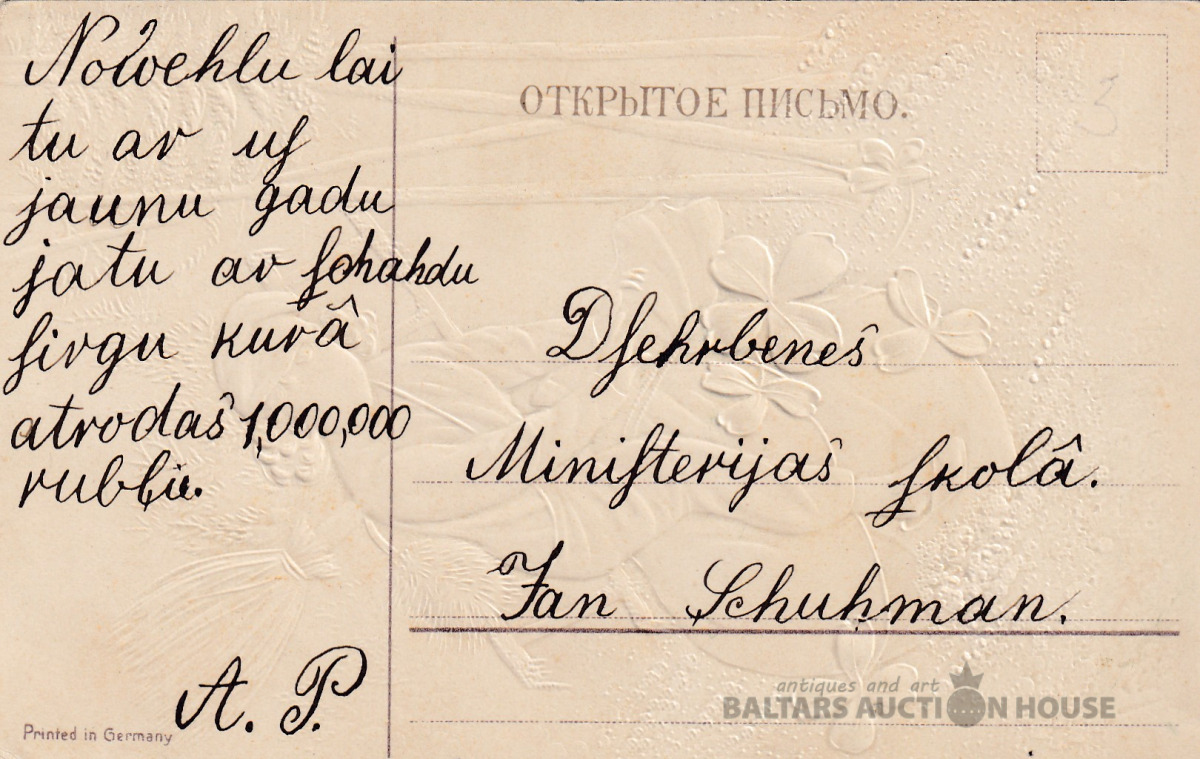 Nowehlu lai
tu ar uſ
jaunu gadu
jatu ar ſchahdu
ſirgu kurâ
atrodaš 1,000,000
rubļu.
A. P.
Printed in Germany
ОТКРЫТОЕ ПИСЬМО.
3
Dſehrbeneš
Miniſterijaš ſkolâ.
Jan Schuhman.
antiques and art
BALTARS AUCTION HOUSE